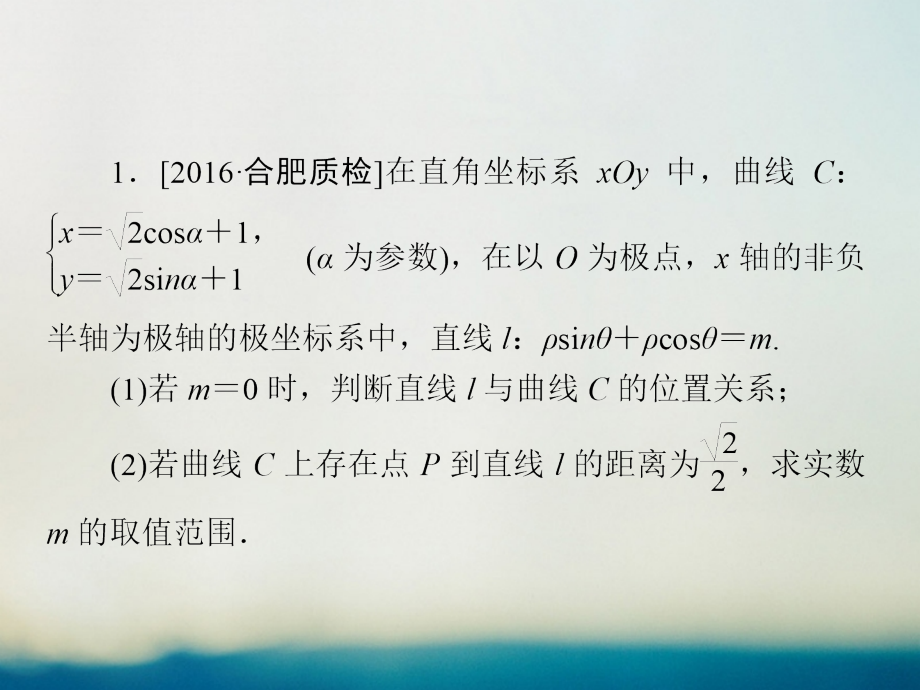 1．[2016·合肥质检]在直角坐标系 xOy 中，曲线 C：
{x＝√2cosα＋1，
y＝√2sinα＋1 (α 为参数)，在以 O 为极点，x 轴的非负
半轴为极轴的极坐标系中，直线 l：ρsinθ＋ρcosθ＝m.
(1)若 m＝0 时，判断直线 l 与曲线 C 的位置关系；
(2)若曲线 C 上存在点 P 到直线 l 的距离为√2/2，求实数
m 的取值范围．